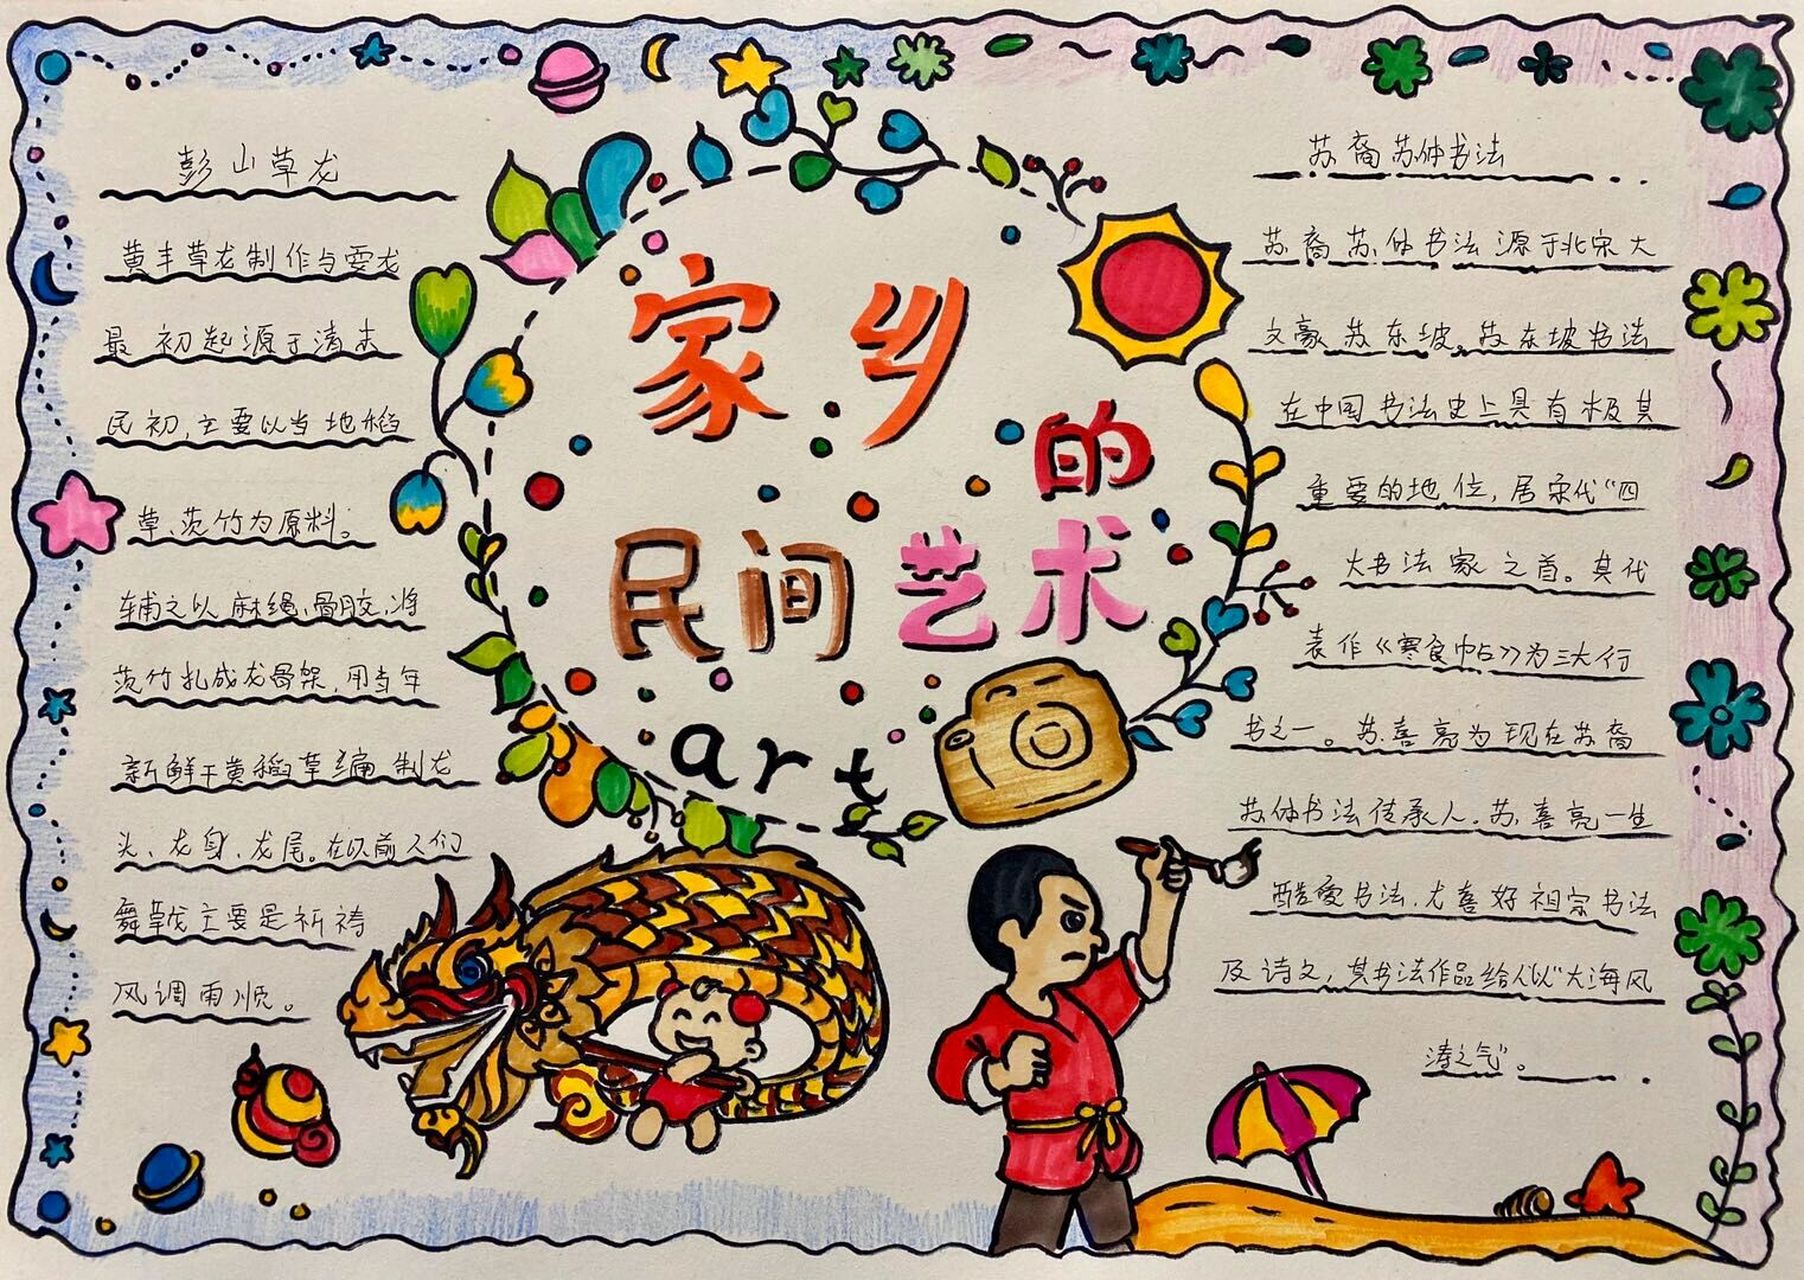 家乡的
民间艺术
art
彭山草龙
黄丰草龙制作与耍龙
最初起源于清末
民初,主要以当地稻
草、茨竹为原料。
辅之以麻绳、骨胶,将
茨竹扎成龙骨架,用当年
新鲜干黄稻草编制龙
头、龙身、龙尾。在以前人们
舞草龙主要是祈祷
风调雨顺。
苏裔苏体书法
苏裔苏体书法源于北宋大
文豪苏东坡。苏东坡书法
在中国书法史上具有极其
重要的地位,居宋代“四
大书法家之首。其代
表作《寒食帖》为三大行
书之一。苏喜亮为现在苏裔
苏体书法传承人,苏喜亮一生
酷爱书法,尤喜好祖宗书法
及诗文,其书法作品给人以“大海风
涛之气”。